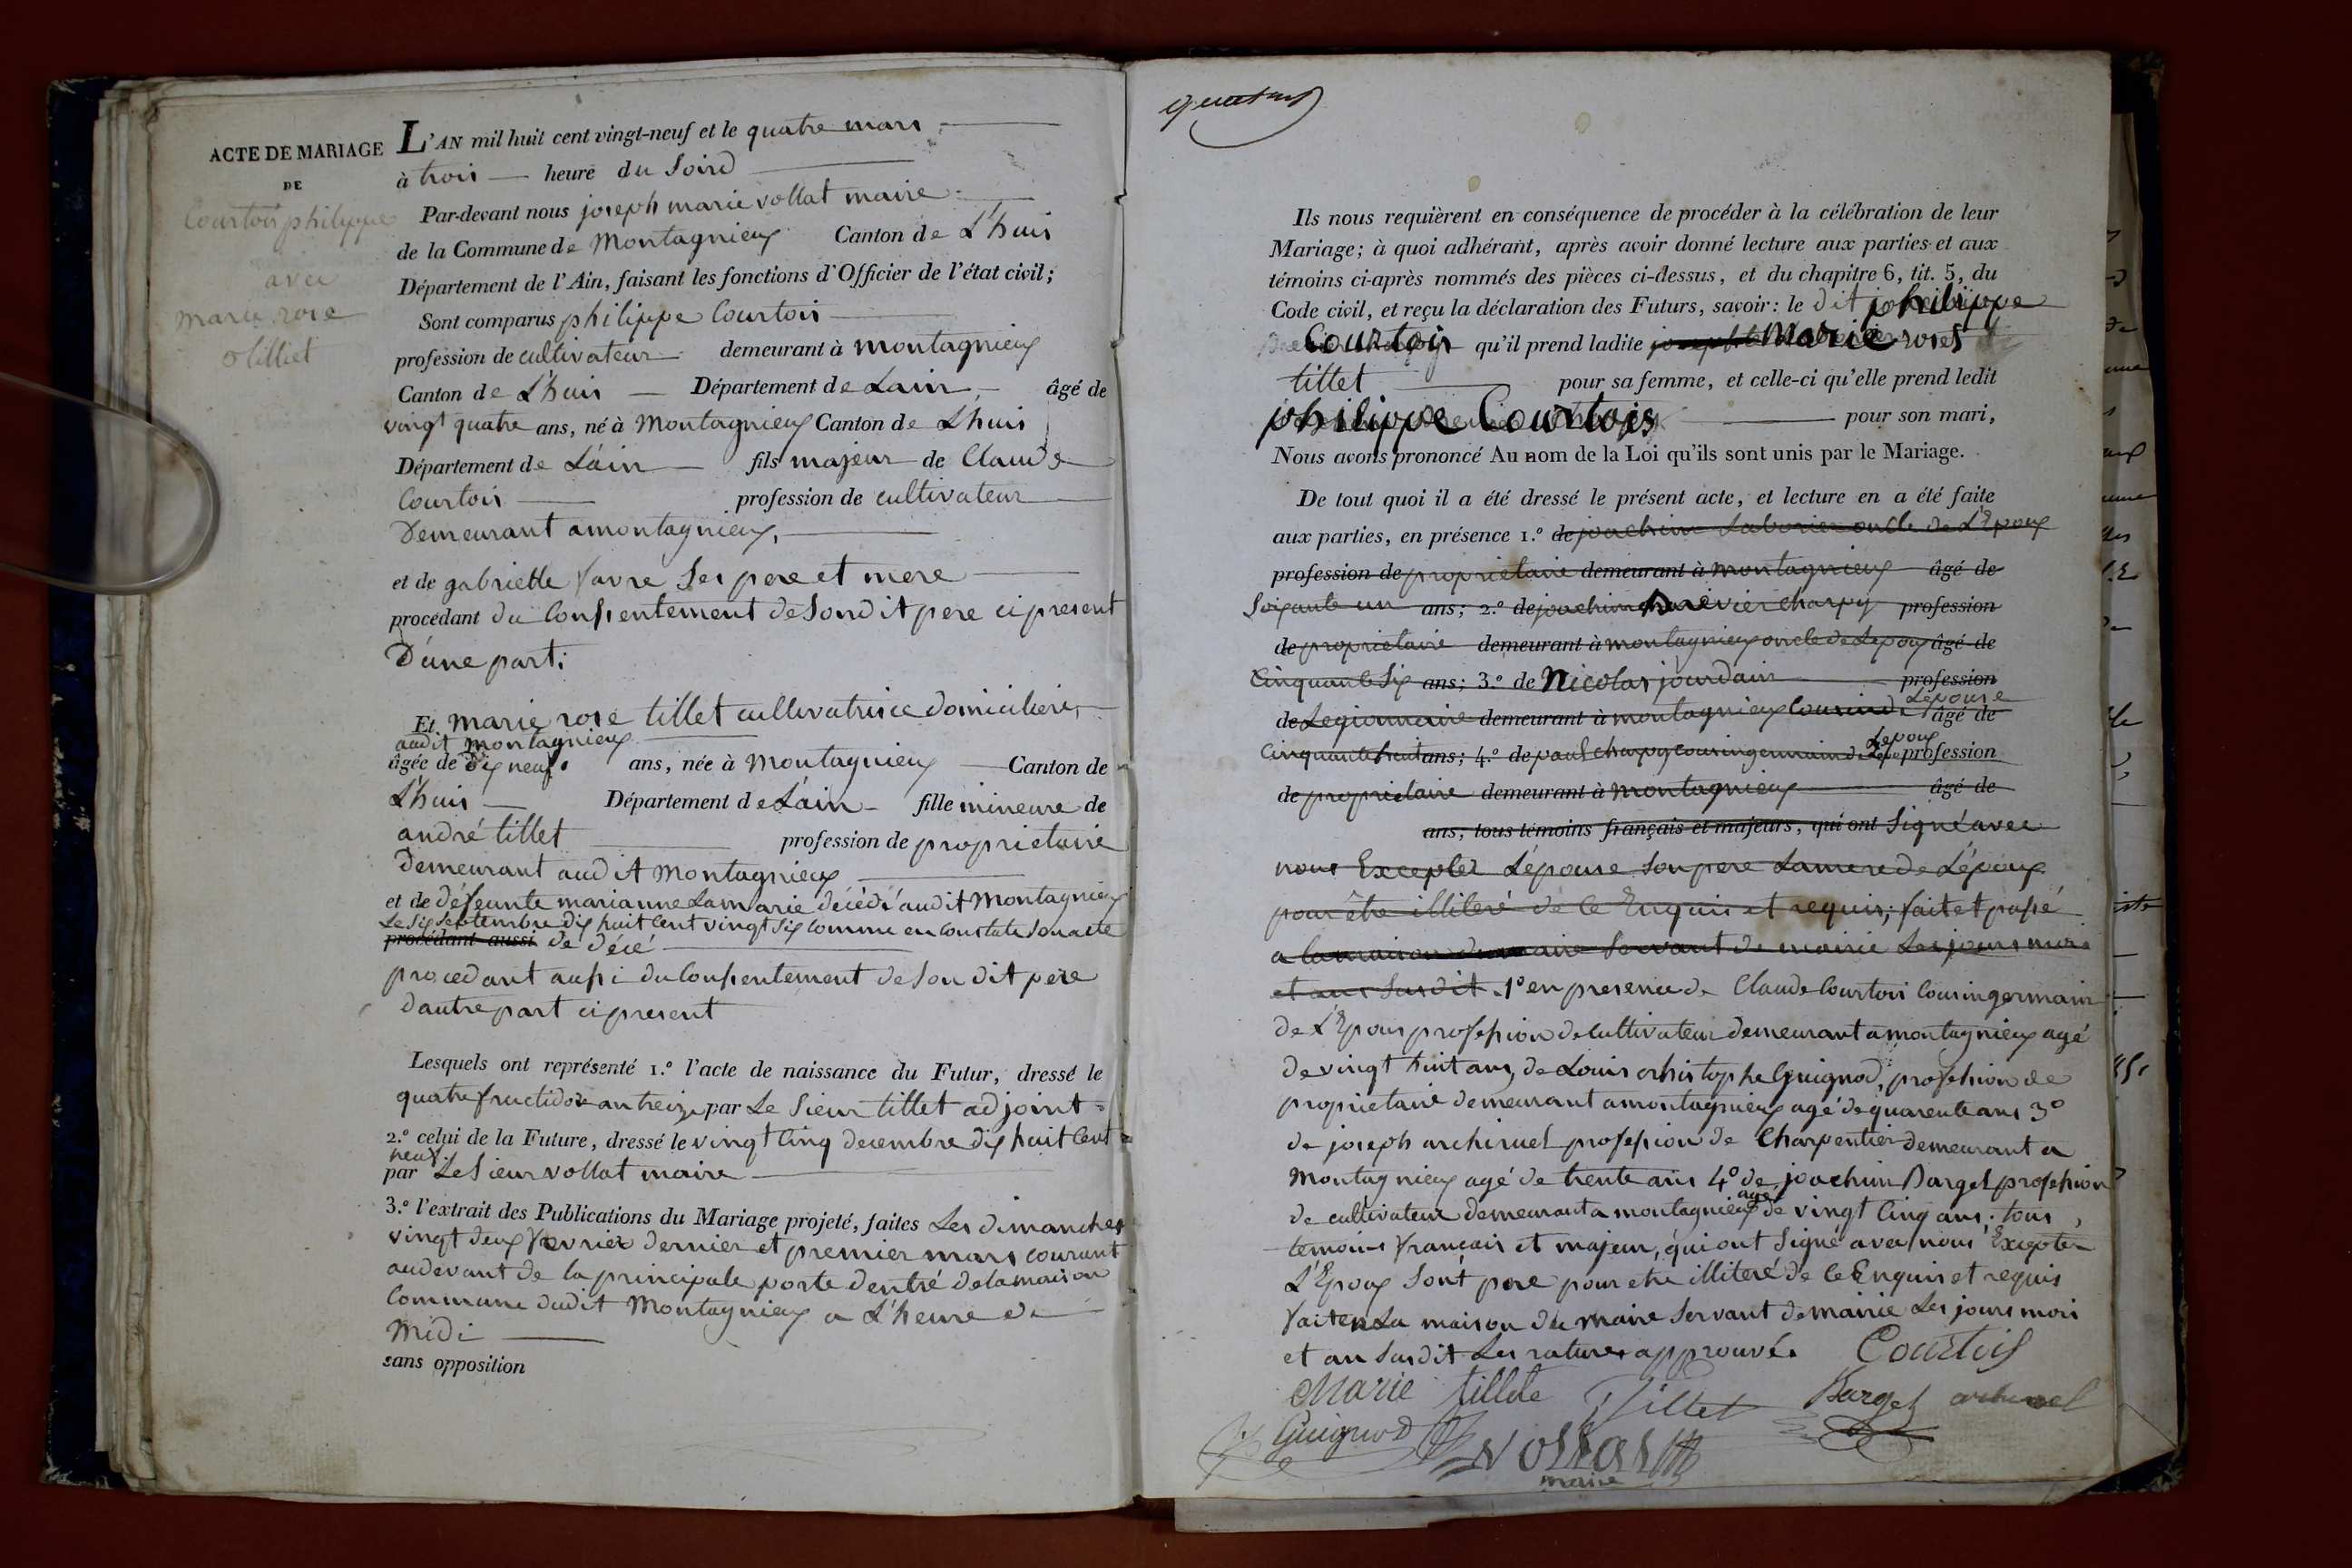 ACTE DE MARIAGE
DE
Courtois philippe
avec
marie rose
tilliet
L'AN mil huit cent vingt-neuf et le quatre mars
à trois heure du Soird
Par-devant nous joseph marie vollat maire
de la Commune de Montagnieux Canton de L'huis
Département de l'Ain, faisant les fonctions d'Officier de l'état civil;
Sont comparus philippe Courtois
profession de cultivateur demeurant à montagnieux
Canton de L'huis Département de Lain âgé de
vingt quatre ans, né à Montagnieux Canton de Lhuis
Département de L'ain fils majeur de Claude
Courtois profession de cultivateur
Demeurant a montagnieux,
et de gabrielle favre Ses pere et mere
procédant du Consentement de Sondit pere ci present
D'une part;
Et marie rose tillet cultivatrice domiciliere,
audit montagnieux
âgée de dix neuf. ans, née à Montagnieux Canton de
L'huis Département de L'ain fille mineure de
andré tillet profession de proprietaire
Demeurant audit Montagnieux
et de défeunte marianne Lamarie décédé audit Montagnieux
Le Six Septembre dix huit Cent vingt Six Comme en Constate Son acte
procédant aussi de décé
procedant aussi du Consentement de Son dit père
dautre part ci present
Lesquels ont représenté 1.º l'acte de naissance du Futur, dressé le
quatre fructidor an treize par Le Sieur tillet adjoint
2.º celui de la Future, dressé le vingt Cinq decembre dix huit Cent
neuf
par Le Sieur vollat maire
3.º l'extrait des Publications du Mariage projeté, faites Les dimanches
vingt deux fevrier dernier et premier mars courant
au devant de la principale porte dentré de la maison
Commune dudit Montagnieux a L'heure de
Midi
sans opposition
Ils nous requièrent en conséquence de procéder à la célébration de leur
Mariage; à quoi adhérant, après avoir donné lecture aux parties et aux
témoins ci-après nommés des pièces ci-dessus, et du chapitre 6, tit. 5, du
Code civil, et reçu la déclaration des Futurs, savoir: le dit philippe
Courtois qu'il prend ladite Marie rose
tillet pour sa femme, et celle-ci qu'elle prend ledit
philippe Courtois pour son mari,
Nous avons prononcé Au nom de la Loi qu'ils sont unis par le Mariage.
De tout quoi il a été dressé le présent acte, et lecture en a été faite
aux parties, en présence 1.º de joachim Laborier oncle de L'Epoux
profession de proprietaire demeurant à Montagnieux âgé de
Soixante un ans; 2.º de joachim charpy profession
de proprietaire demeurant à montagnieux oncle de Lepoux âgé de
Cinquante Six ans; 3.º de Nicolas jourdain profession
Lepouse
de Legionnaire demeurant à montagnieux Cousin de âgé de
Lepoux
Cinquante huit ans; 4.º de paul charpy cousin germain de profession
de proprietaire demeurant à Montagnieux âgé de
ans, tous témoins français et majeurs, qui ont Signé avec
nous Excepter L'épouse Son pere La mere de L'époux
pour être illiteré de ce Enquis et requis; fait et passé
a la maison du maire Servant de mairie Les jours mois
et an Susdit. 1º en presence de Claude Courtois Cousin germain
de L'Epoux profession de Cultivateur demeurant a montagnieux agé
de vingt huit ans, de Louis christophe Guignod, profession de
proprietaire demeurant a montagnieux agé de quarente ans 3º
de joseph archinet profession de Charpentier demeurant a
Montagnieux agé de trente ans 4º de joachim Barget profession
agé
de cultivateur demeurant a montagnieux de vingt Cinq ans; tous
temoins francais et majeur, qui ont Signé avec nous Excepter
L'Epoux Sont pere pour etre illiteré de ce Enquis et requis
fait en La maison du maire Servant de mairie Les jours mois
et an Susdit Les ratures approuvés. Courtois
Marie tillete Tillet Barget
Guignod vollat
maire